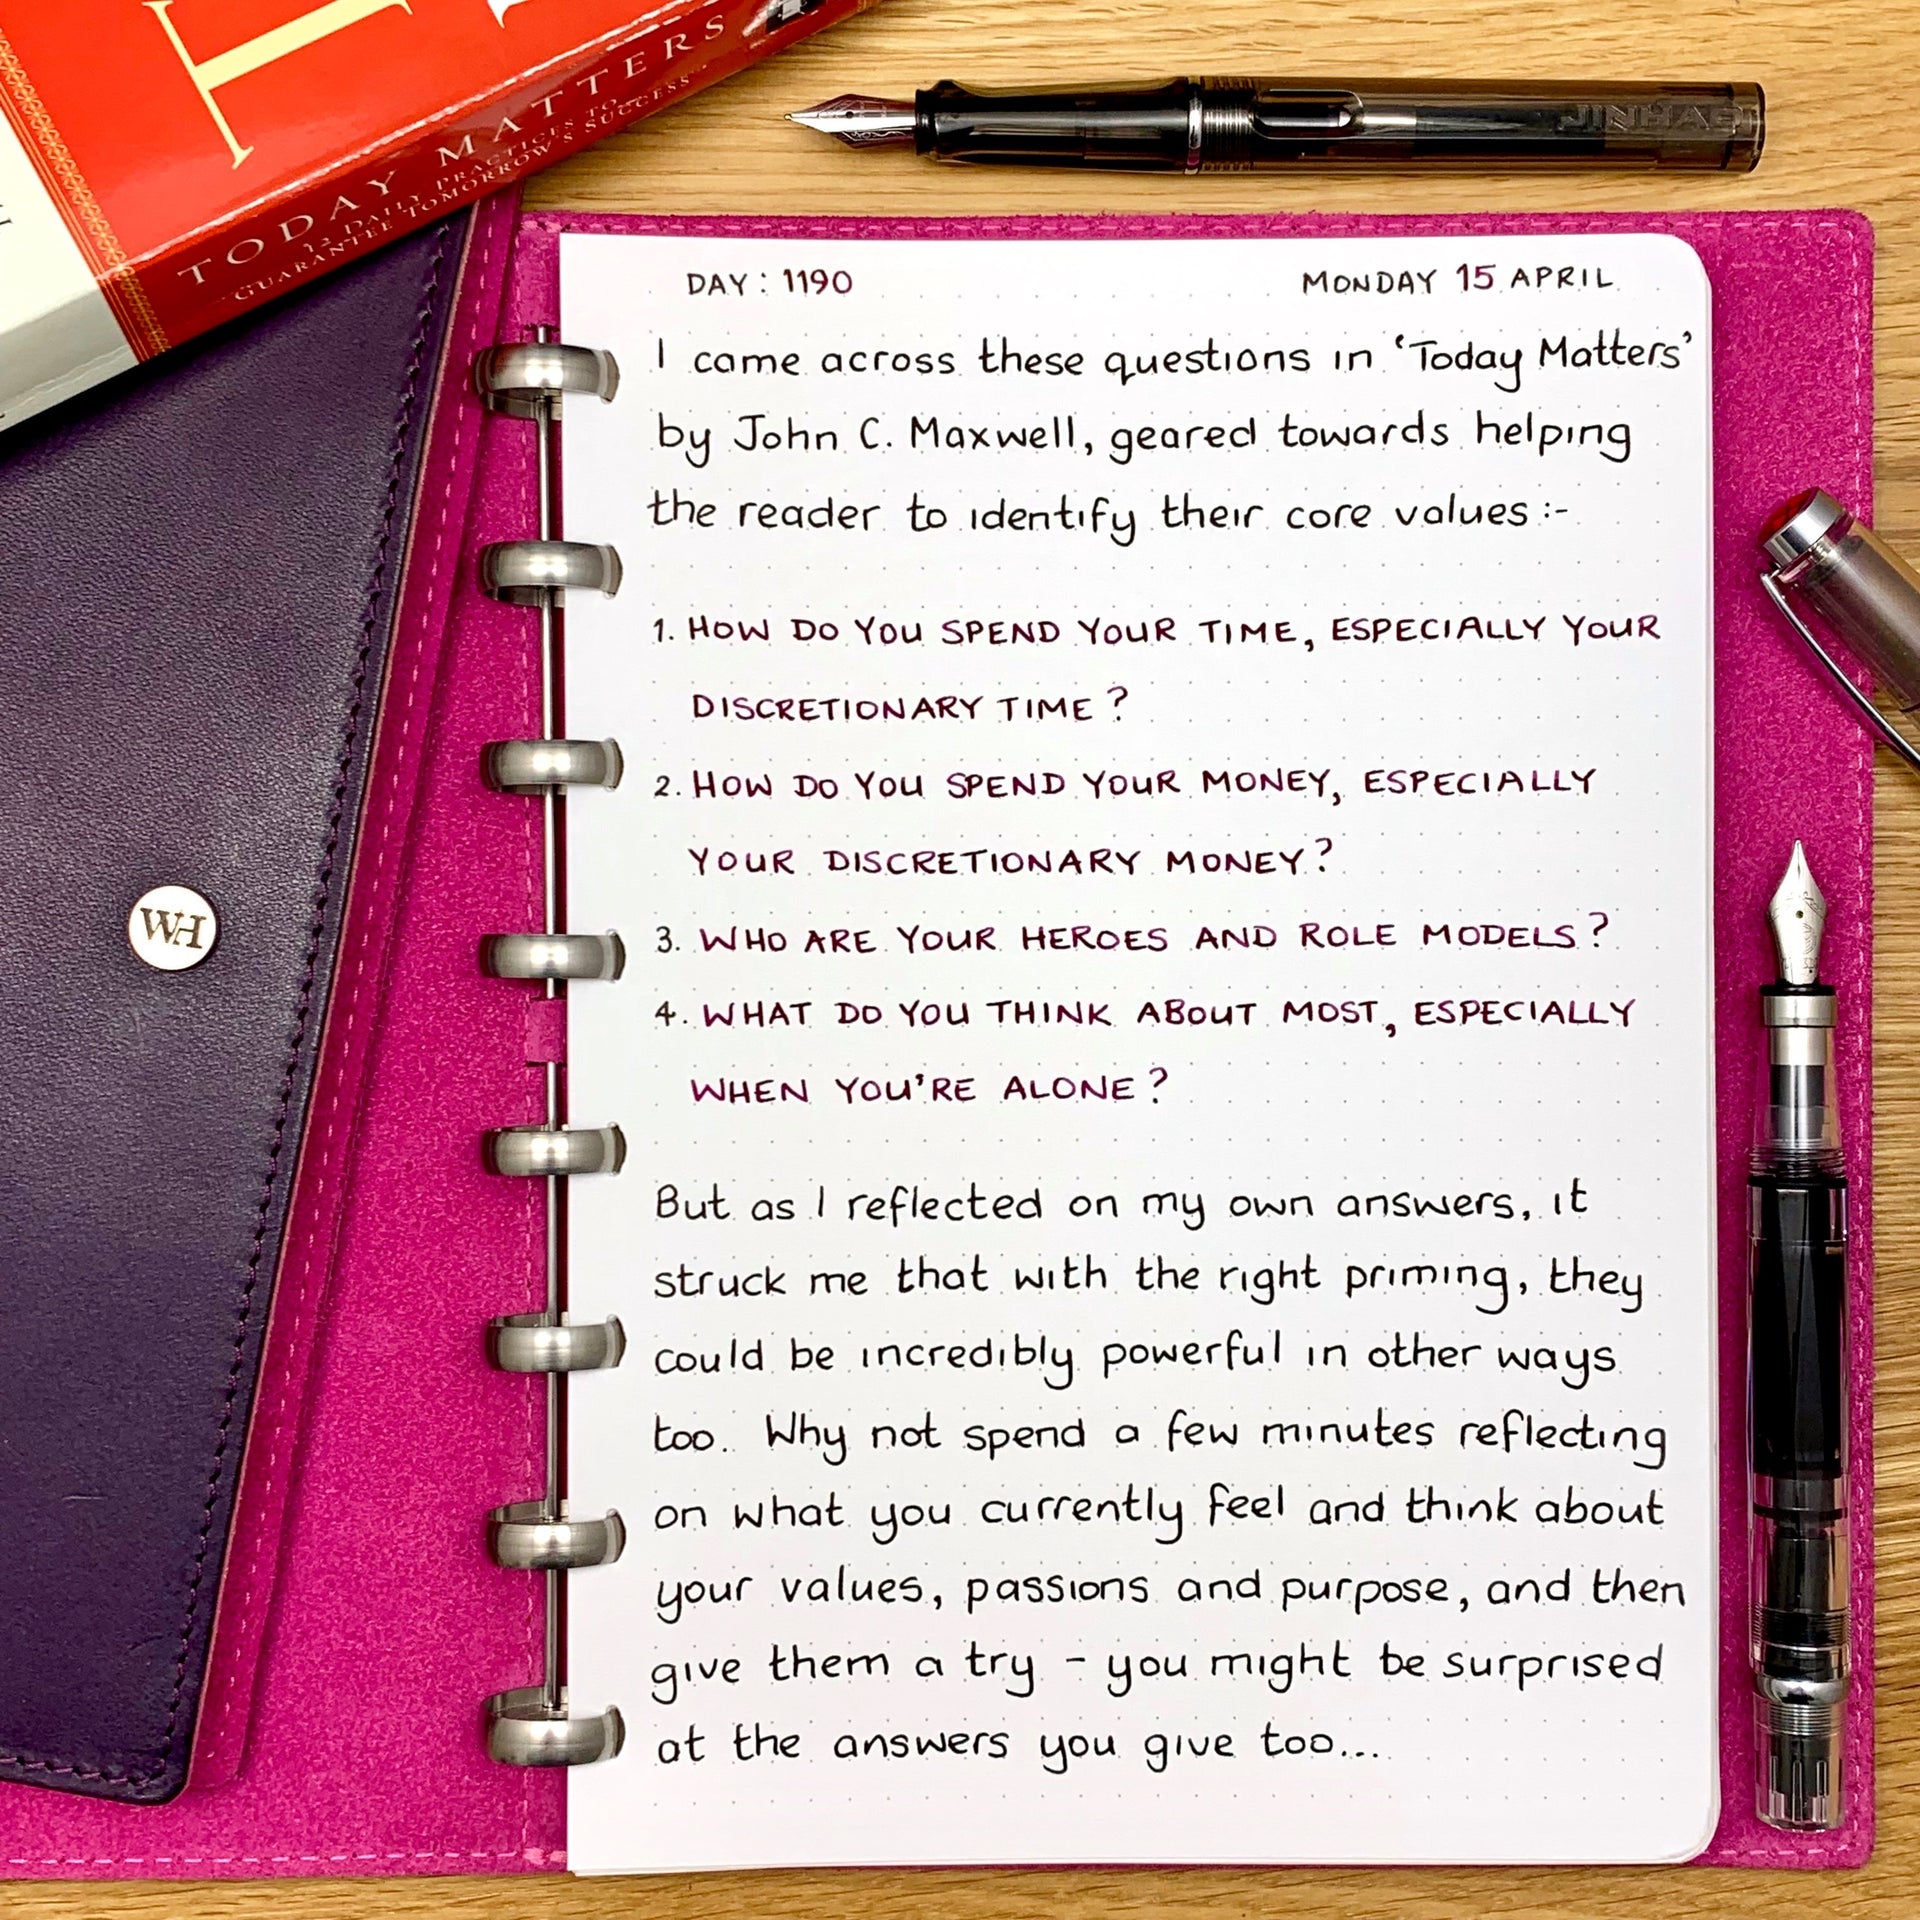 TODAY MATTERS
12 DAILY PRACTICES TO
GUARANTEE TOMORROW'S SUCCESS
JINHAO
WH
DAY: 1190
MONDAY 15 APRIL
I came across these questions in ‘Today Matters’
by John C. Maxwell, geared towards helping
the reader to identify their core values :-
1. HOW DO YOU SPEND YOUR TIME, ESPECIALLY YOUR
DISCRETIONARY TIME?
2. HOW DO YOU SPEND YOUR MONEY, ESPECIALLY
YOUR DISCRETIONARY MONEY?
3. WHO ARE YOUR HEROES AND ROLE MODELS?
4. WHAT DO YOU THINK ABOUT MOST, ESPECIALLY
WHEN YOU'RE ALONE?
But as I reflected on my own answers, it
struck me that with the right priming, they
could be incredibly powerful in other ways
too. Why not spend a few minutes reflecting
on what you currently feel and think about
your values, passions and purpose, and then
give them a try - you might be surprised
at the answers you give too...